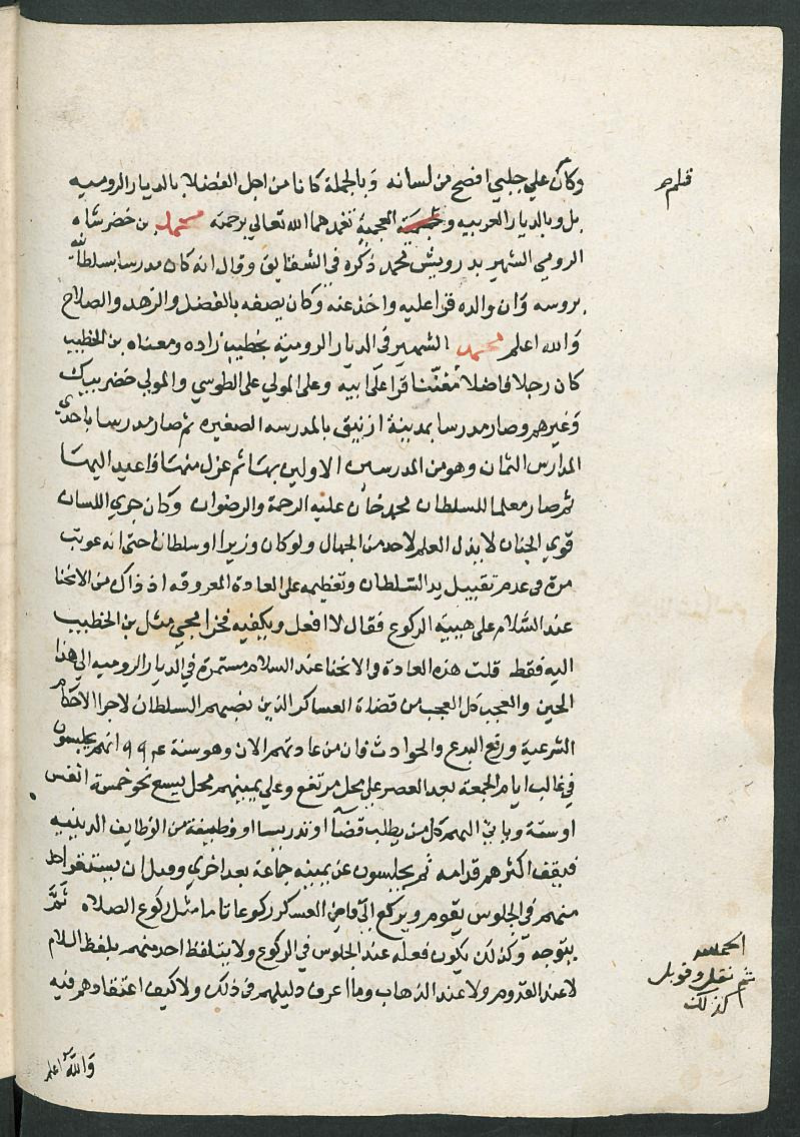 وكان علي جلبي افصح من لسانه وبالجملة كانا من اجل الفضلا بالديار الروميه
قلم
بل وبالديار العربيه و العجمية تغمدهما الله تعالى برحمته محمد بن خضر شاه
الرومي الشهير بدرويش محمد ذكره في الشقايق وقال انه كان مدرسا بسلطانية
بروسه وان والده قرا عليه واخذ عنه وكان يصفه بالفضل والزهد والصلاح
والله اعلم محمد الشهير في الديار الرومية بخطيب زاده ومعناه بن الخطيب
كان رجلا فاضلا مفننا قرا على ابيه وعلى المولي على الطوسي والمولي خضر بيك
وغيرهم وصار مدرسا بمدينة ازنيق بالمدرسه الصغيره ثم صار مدرسا باحدى
المدارس الثمان وهو من المدرسين الاولين بها ثم عزل منها واعيد اليها
ثم صار معلما للسلطان محمد خان عليه الرحمة والرضوان وكان جري اللسان
قوي الجنان لا يذل العلم لاحد من الجهال ولو كان وزيرا او سلطانا حتى انه عوتب
مرة في عدم تقبيل يد السلطان وتعظيمه على العادة المعروفه اذ ذاك من الانحنا
عند السلام على هيية الركوع فقال لا افعل ويكفيه فخرا مجي مثل بن الخطيب
اليه فقط قلت هذه العادة والانحنا عند السلام مستمرة في الديار الروميه الى هذا
الحين والعجب كل العجب من قضاة العساكر الذين نصبهم السلطان لاجرا الاحكام
الشرعية ورفع البدع والحوادث فان من عادتهم الان وهو سنة ٩٩٤ انهم يجلسون
في غالب ايام الجمعة بعد العصر على محل مرتفع وعلى يمينهم محل يسع نحو خمسة انفس
او ستة وياتي اليهم كل من يطلب قضا او تدريسا او وظيفة من الوظايف الدينيه
فيقف اكثرهم قدامه ثم يجلسون عن يمينه جماعة بعد اخري وقبل ان يستقر واحد
منهم في الجلوس يقوم ويركع الى قاضي العسكر ركوعا تاما مثل ركوع الصلاه ثم
يتوجه وكذلك يكون فعله عند الجلوس في الركوع ولا يتلفظ احد منهم بلفظ السلام
لا عند القدوم ولا عند الذهاب وما اعرف دليلهم في ذلك ولا كيف اعتقادهم فيه
الحمد لله
ثم نقل وقوبل
كذلك
والله اعلم